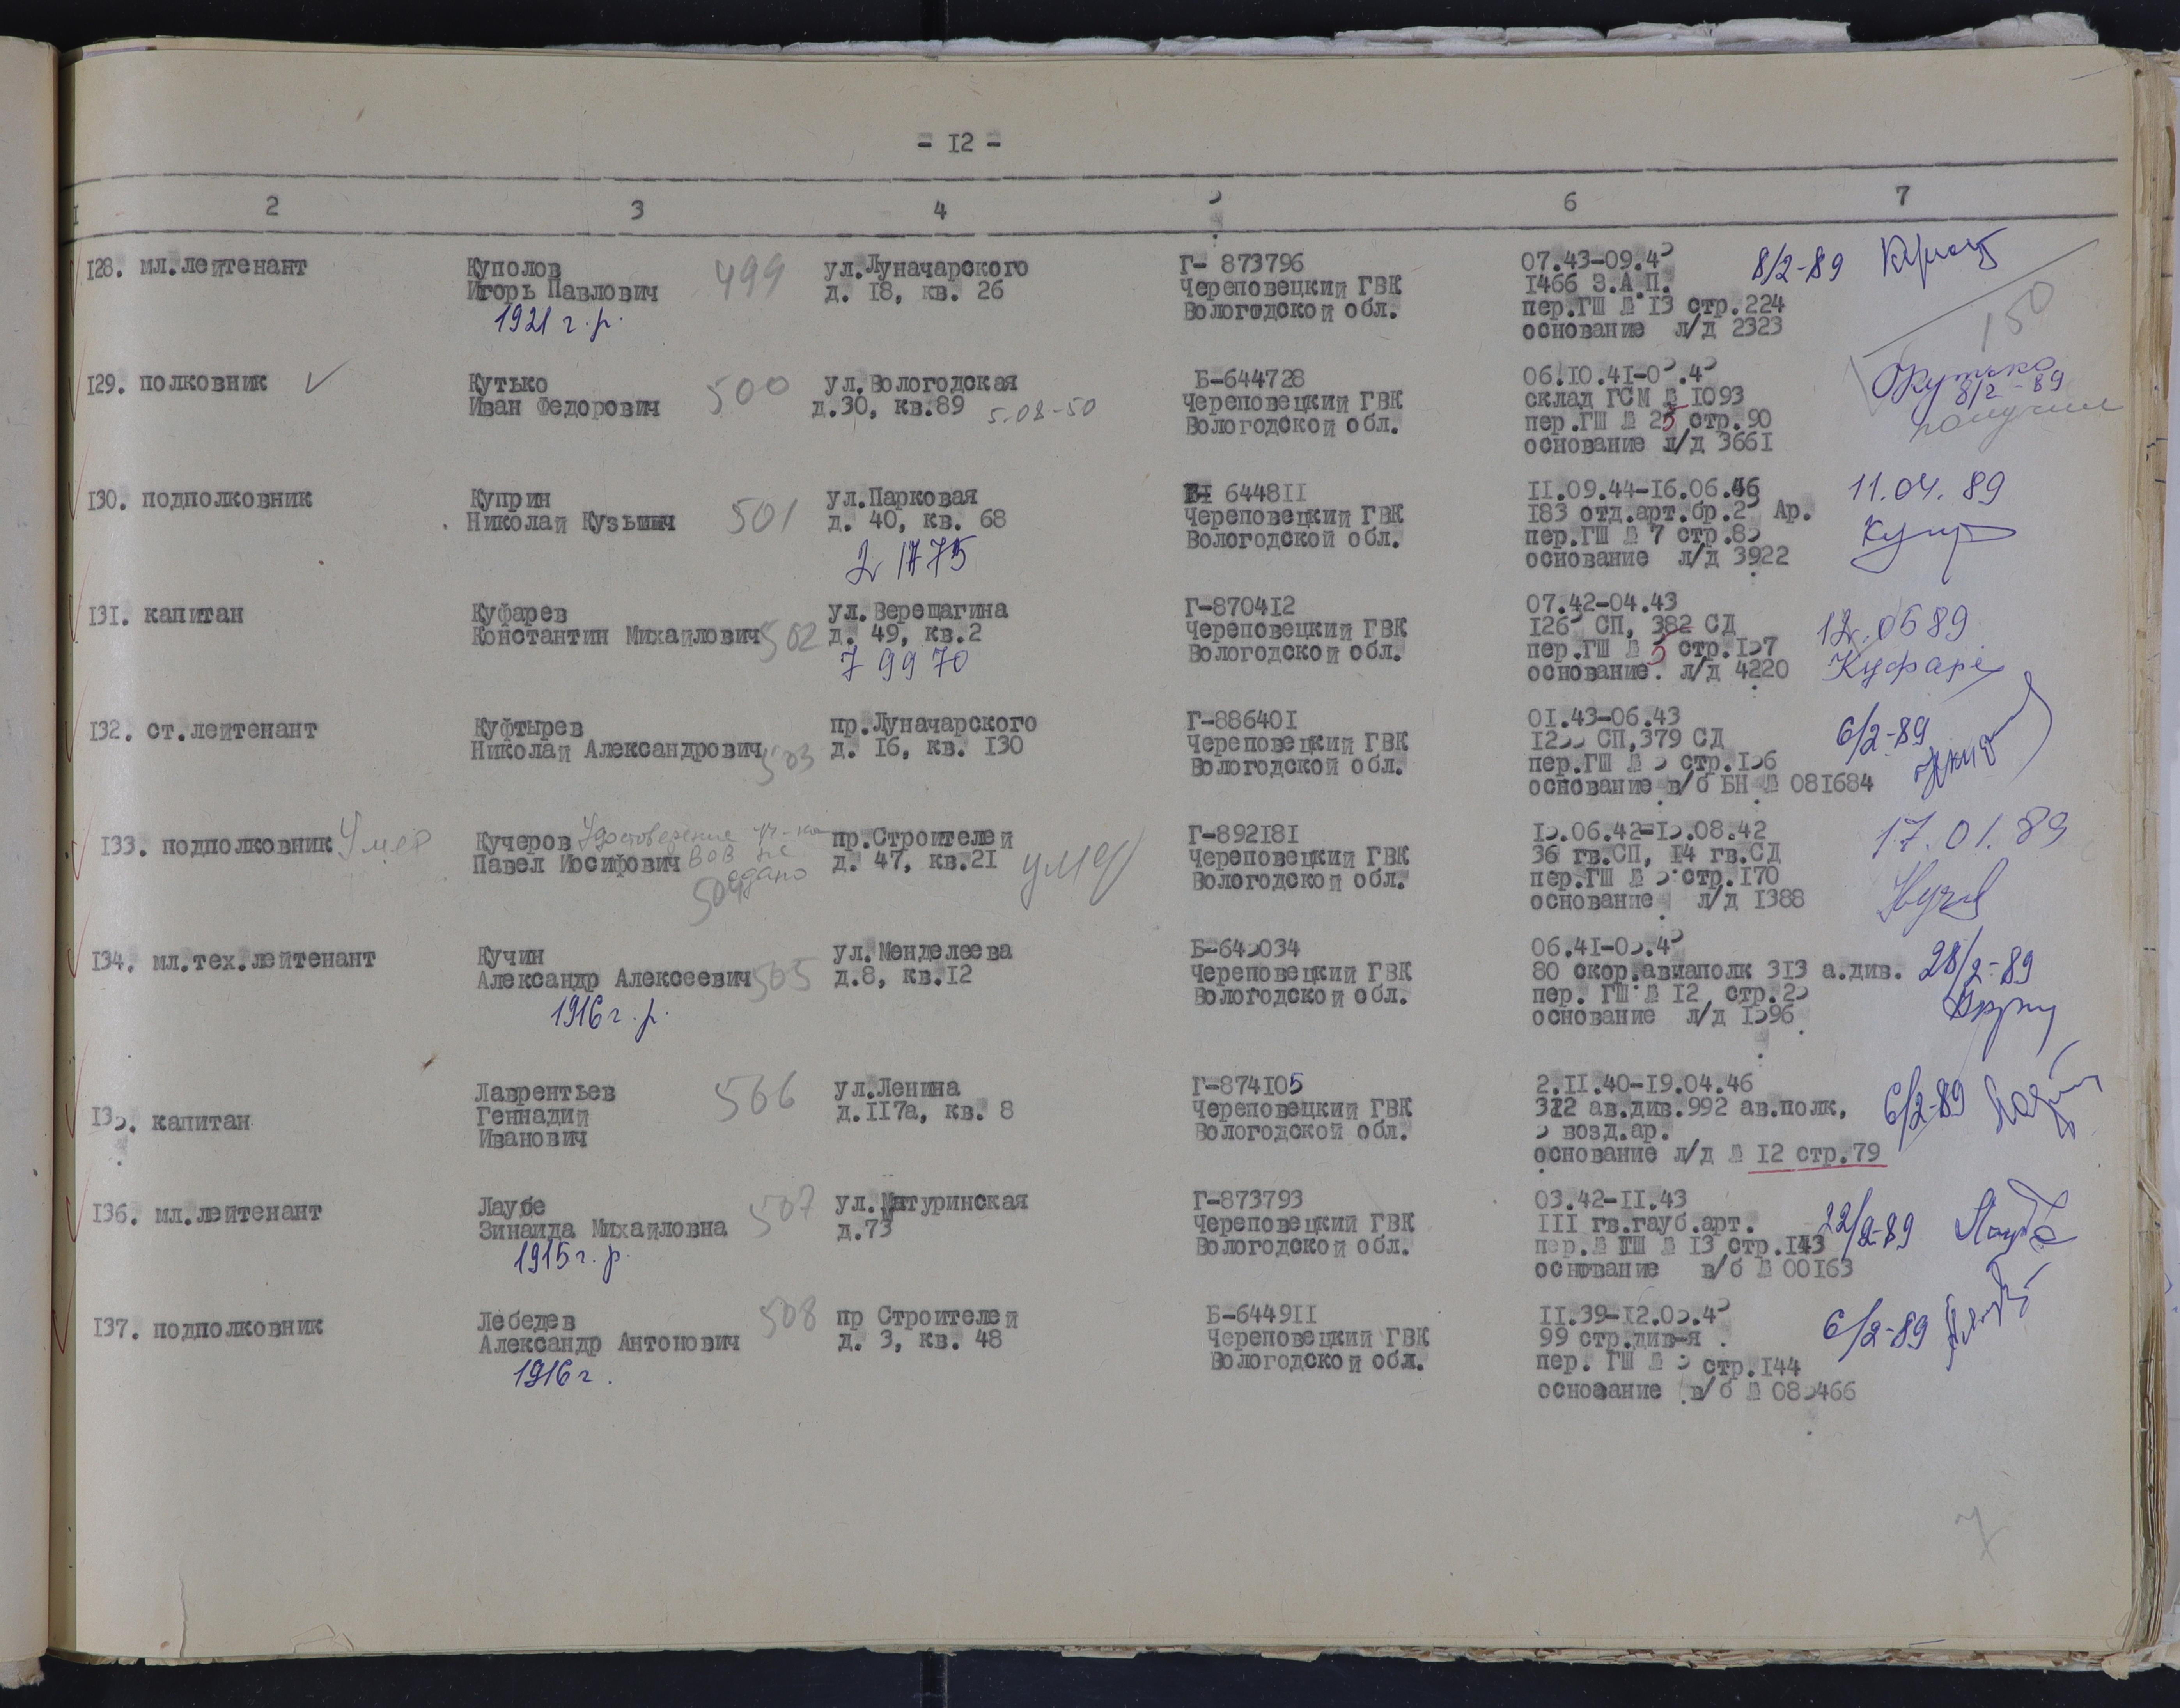 - 12 -
2 3 4 5 6 7
128. мл.лейтенант
Куполов
Игорь Павлович
1921 г.р.
499
ул.Луначарского
д. 18, кв. 26
Г- 873796
Череповецкий ГВК
Вологодской обл.
07.43-09.45
1466 З.А.П.
пер.ГШ № 13 стр.224
основание л/д 2323
8/2-89
129. полковник
Кутько
Иван Федорович
500
ул.Вологодская
д.30, кв.89
5-08-50
Б-644728
Череповецкий ГВК
Вологодской обл.
06.10.41-05.45
склад ГСМ № 1093
пер.ГШ № 25 стр.90
основание л/д 3661
150
Кутько
8/2-89
получил
130. подполковник
Куприн
Николай Кузьмич
501
ул.Парковая
д. 40, кв. 68
2 1775
644811
Череповецкий ГВК
Вологодской обл.
11.09.44-16.06.46
183 отд.арт.бр.25 Ар.
пер.ГШ № 7 стр.85
основание л/д 3922
11.04.89
131. капитан
Куфарев
Константин Михайлович
502
ул.Верещагина
д. 49, кв.2
7 99 70
Г-870412
Череповецкий ГВК
Вологодской обл.
07.42-04.43
1265 СП, 382 СД
пер.ГШ № 5 стр.157
основание. л/д 4220
12.0689
Куфарев
132. ст.лейтенант
Куфтырев
Николай Александрович
503
пр.Луначарского
д. 16, кв. 130
Г-886401
Череповецкий ГВК
Вологодской обл.
01.43-06.43
1255 СП,379 СД
пер.ГШ № 5 стр.156
основание в/б БН № 081684
6/2-89
133. подполковник
Умер
Кучеров
Павел Иосифович
Удостоверение уч-ка
ВОВ не
сдано
504
пр.Строителей
д. 47, кв.21
умер
Г-892181
Череповецкий ГВК
Вологодской обл.
15.06.42-15.08.42
36 гв.СП, 14 гв.СД
пер.ГШ № 5 стр.170
основание л/д 1388
17.01.89
134. мл.тех.лейтенант
Кучин
Александр Алексеевич
1916 г.р.
505
ул.Менделеева
д.8, кв.12
Б-645034
Череповецкий ГВК
Вологодской обл.
06.41-05.45
80 скор.авиаполк 313 а.див.
пер. ГШ № 12 стр.25
основание л/д 1596
28/2-89
135. капитан
Лаврентьев
Геннадий
Иванович
506
ул.Ленина
д.117а, кв. 8
Г-874105
Череповецкий ГВК
Вологодской обл.
2.11.40-19.04.46
312 ав.див.992 ав.полк,
5 возд.ар.
основание л/д № 12 стр.79
6/2-89
136. мл.лейтенант
Лаубе
Зинаида Михайловна
1915 г.р.
507
ул.Матуринская
д.73
Г-873793
Череповецкий ГВК
Вологодской обл.
03.42-11.43
111 гв.гауб.арт.
пер.№ ГШ № 13 стр.143
основание в/б № 00163
22/2-89
Лаубе
137. подполковник
Лебедев
Александр Антонович
1916 г.
508
пр Строителей
д. 3, кв. 48
Б-644911
Череповецкий ГВК
Вологодской обл.
11.39-12.05.45
99 стр.див-я
пер. ГШ № 5 стр.144
основание в/б № 085466
6/2-89
7